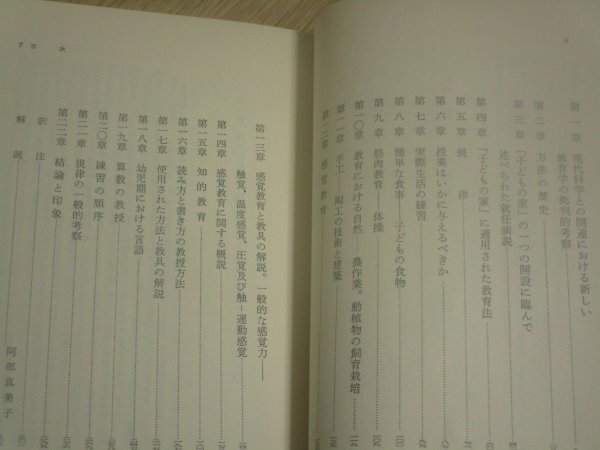 6
第一章　現代科学との関連における新しい
教育学の批判的考察
第二章　方法の歴史
第三章　「子どもの家」の一つの開設に臨んで
述べられた就任演説
第四章　「子どもの家」に適用された教育法
第五章　規律
第六章　授業はいかに与えるべきか
第七章　実際生活の練習
第八章　簡単な食事　子どもの食物
第九章　筋肉教育　体操
第一〇章　教育における自然　農作業。動植物の飼育栽培
第一一章　手工──陶工の技術と建築
第一二章　感覚教育
7　目　次
第一三章　感覚教育と教具の解説。一般的な感覚力──
触覚、温度感覚、圧覚及び触‐運動感覚
第一四章　感覚教育に関する概説
第一五章　知的教育
第一六章　読み方と書き方の教授方法
第一七章　使用された方法と教具の解説
第一八章　幼児期における言語
第一九章　算数の教授
第二〇章　練習の順序
第二一章　規律の一般的考察
第二二章　結論と印象
訳注
解説　阿部真美子